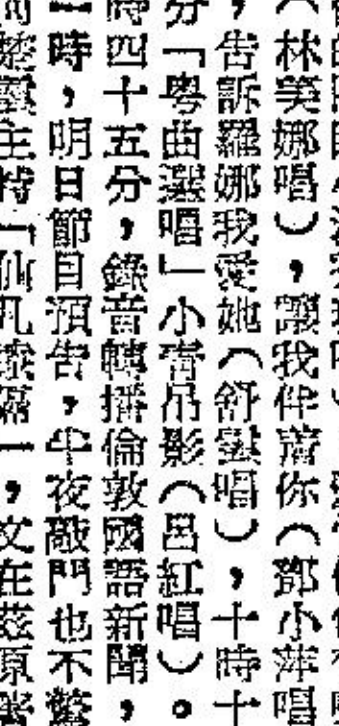 （林美娜唱），讓我伴你（鄧小萍唱
，告訴羅娜我愛她（舒雲唱），十時十
分「粵曲選唱」小青吊影（呂紅唱）。
時四十五分，錄音轉播倫敦國語新聞，
一時，明日節目預告，半夜敲門也不驚
楚雲主持「仙凡隔」，文在茲原著